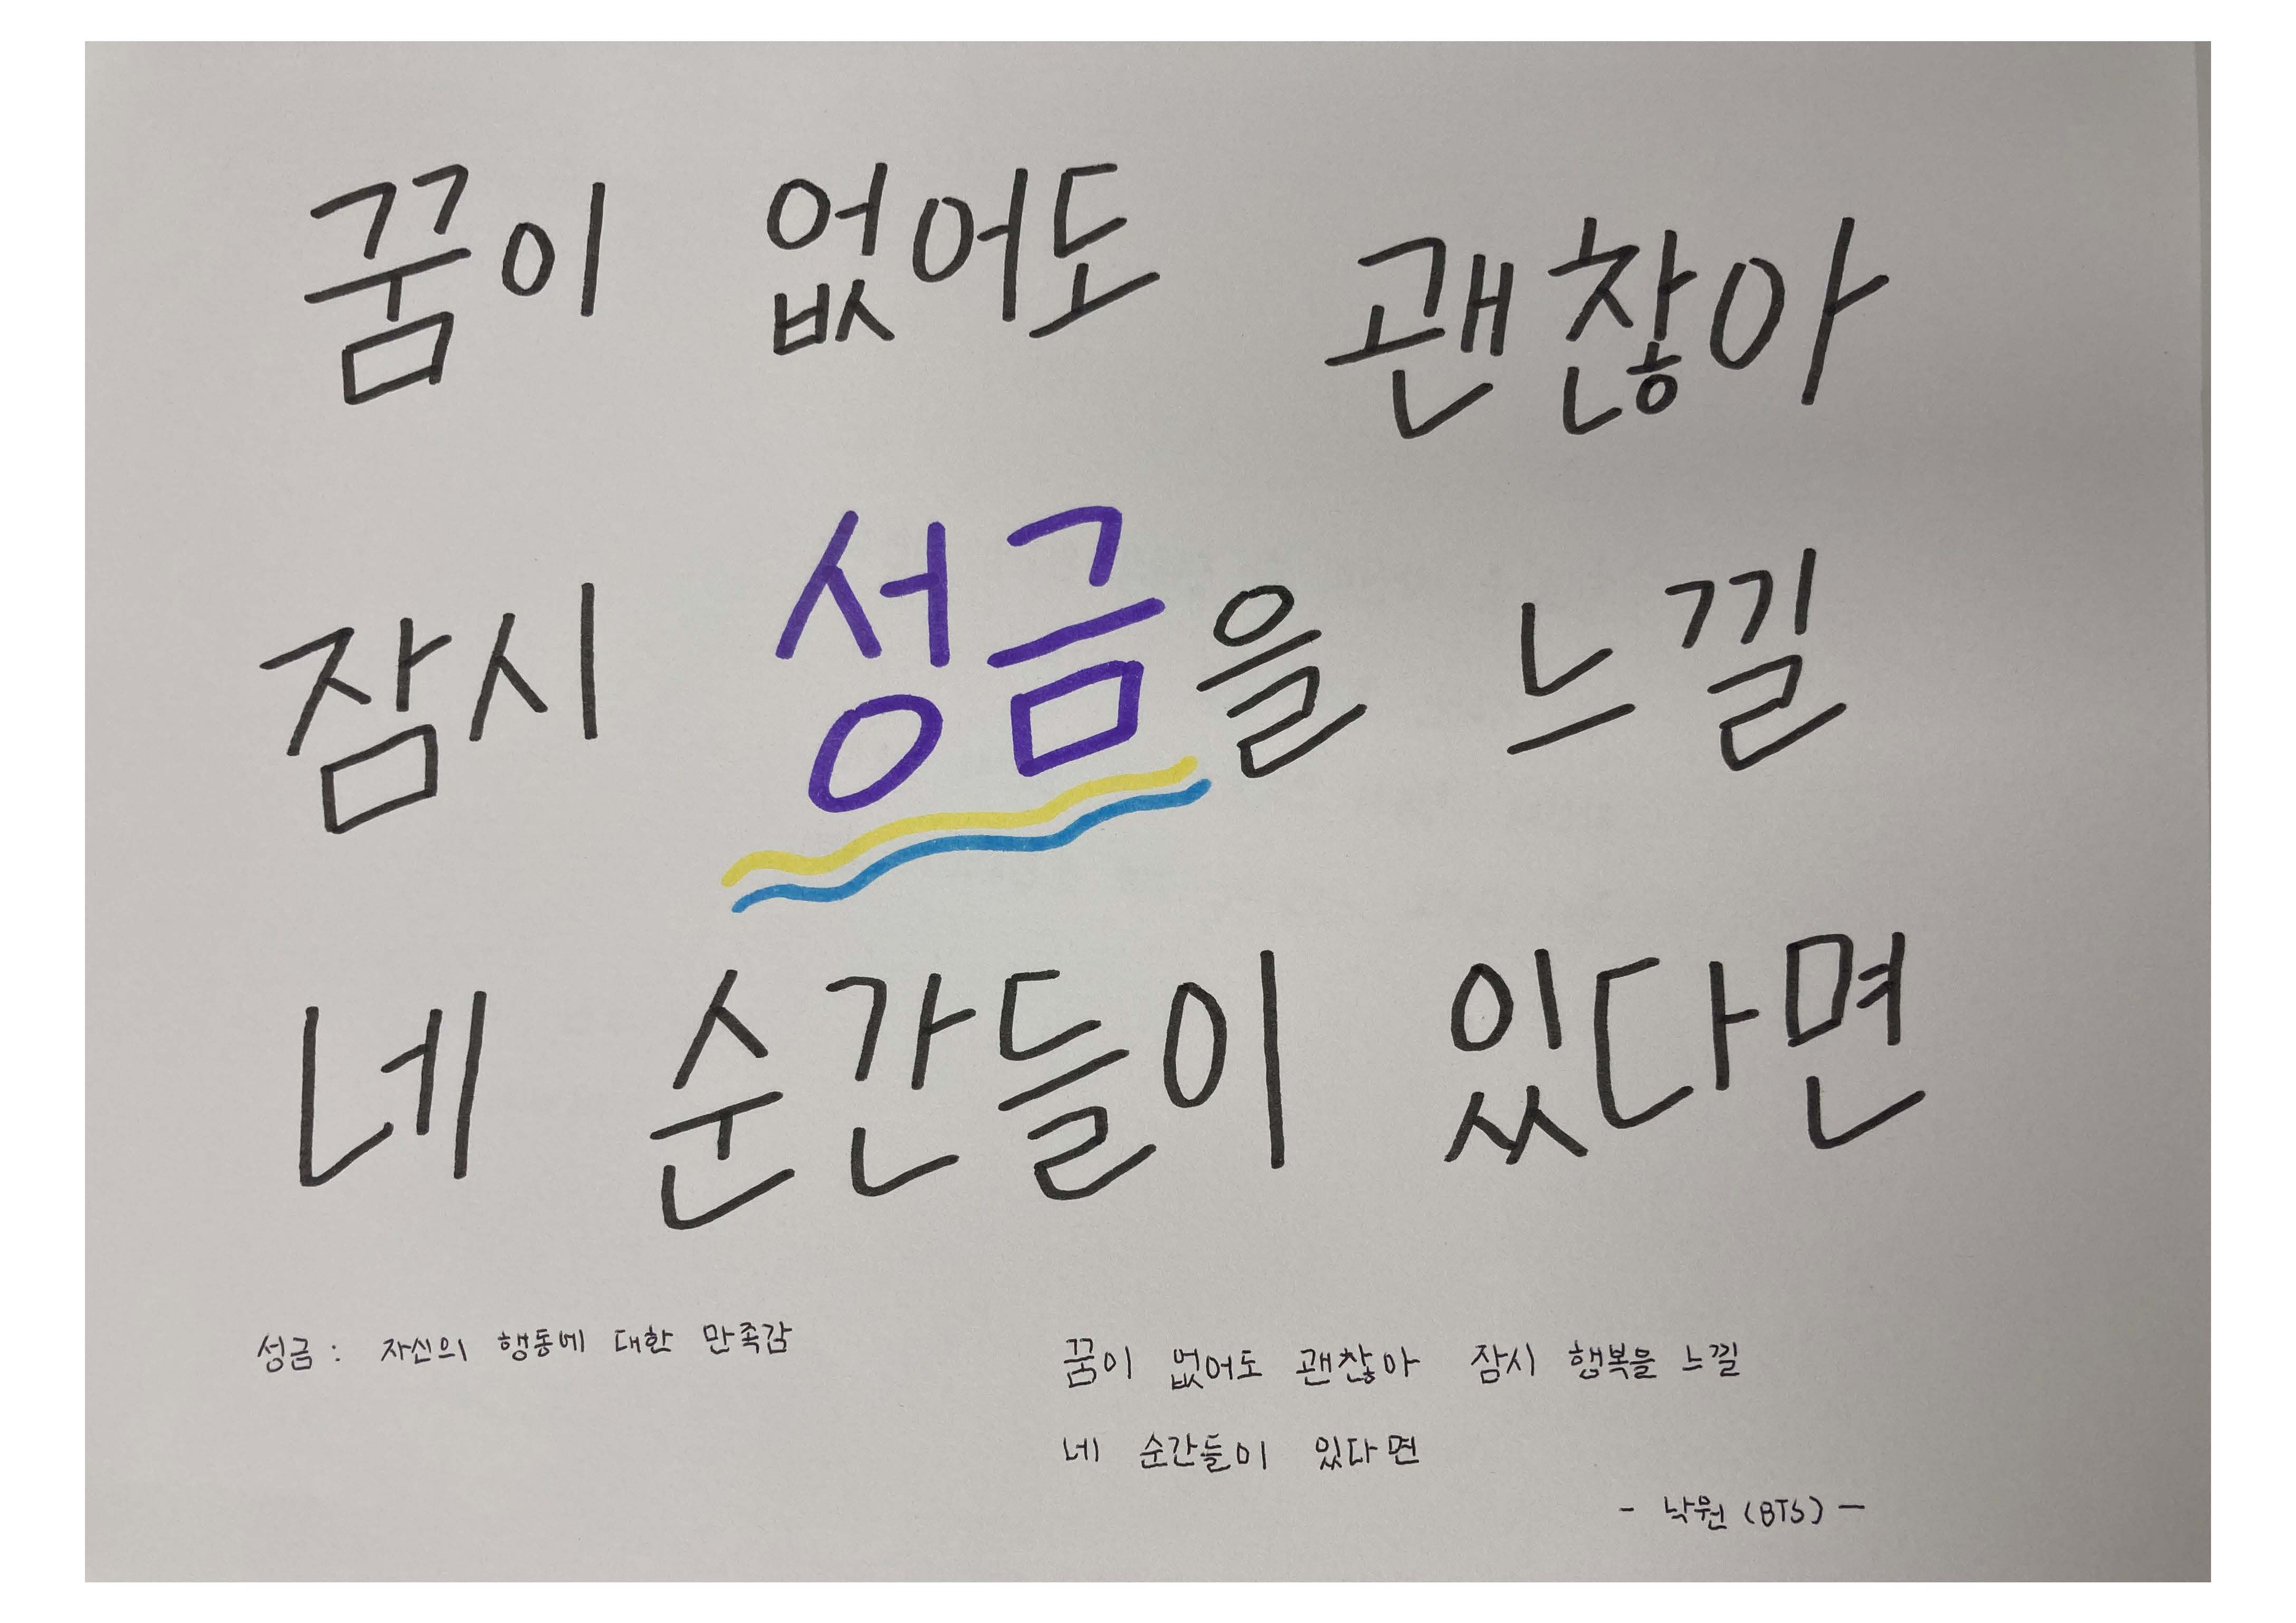 꿈이 없어도 괜찮아
잠시 성금을 느낄
네 순간들이 있다면
성금 : 자신의 행동에 대한 만족감
꿈이 없어도 괜찮아 잠시 행복을 느낄
네 순간들이 있다면
- 낙원 (BTS) -